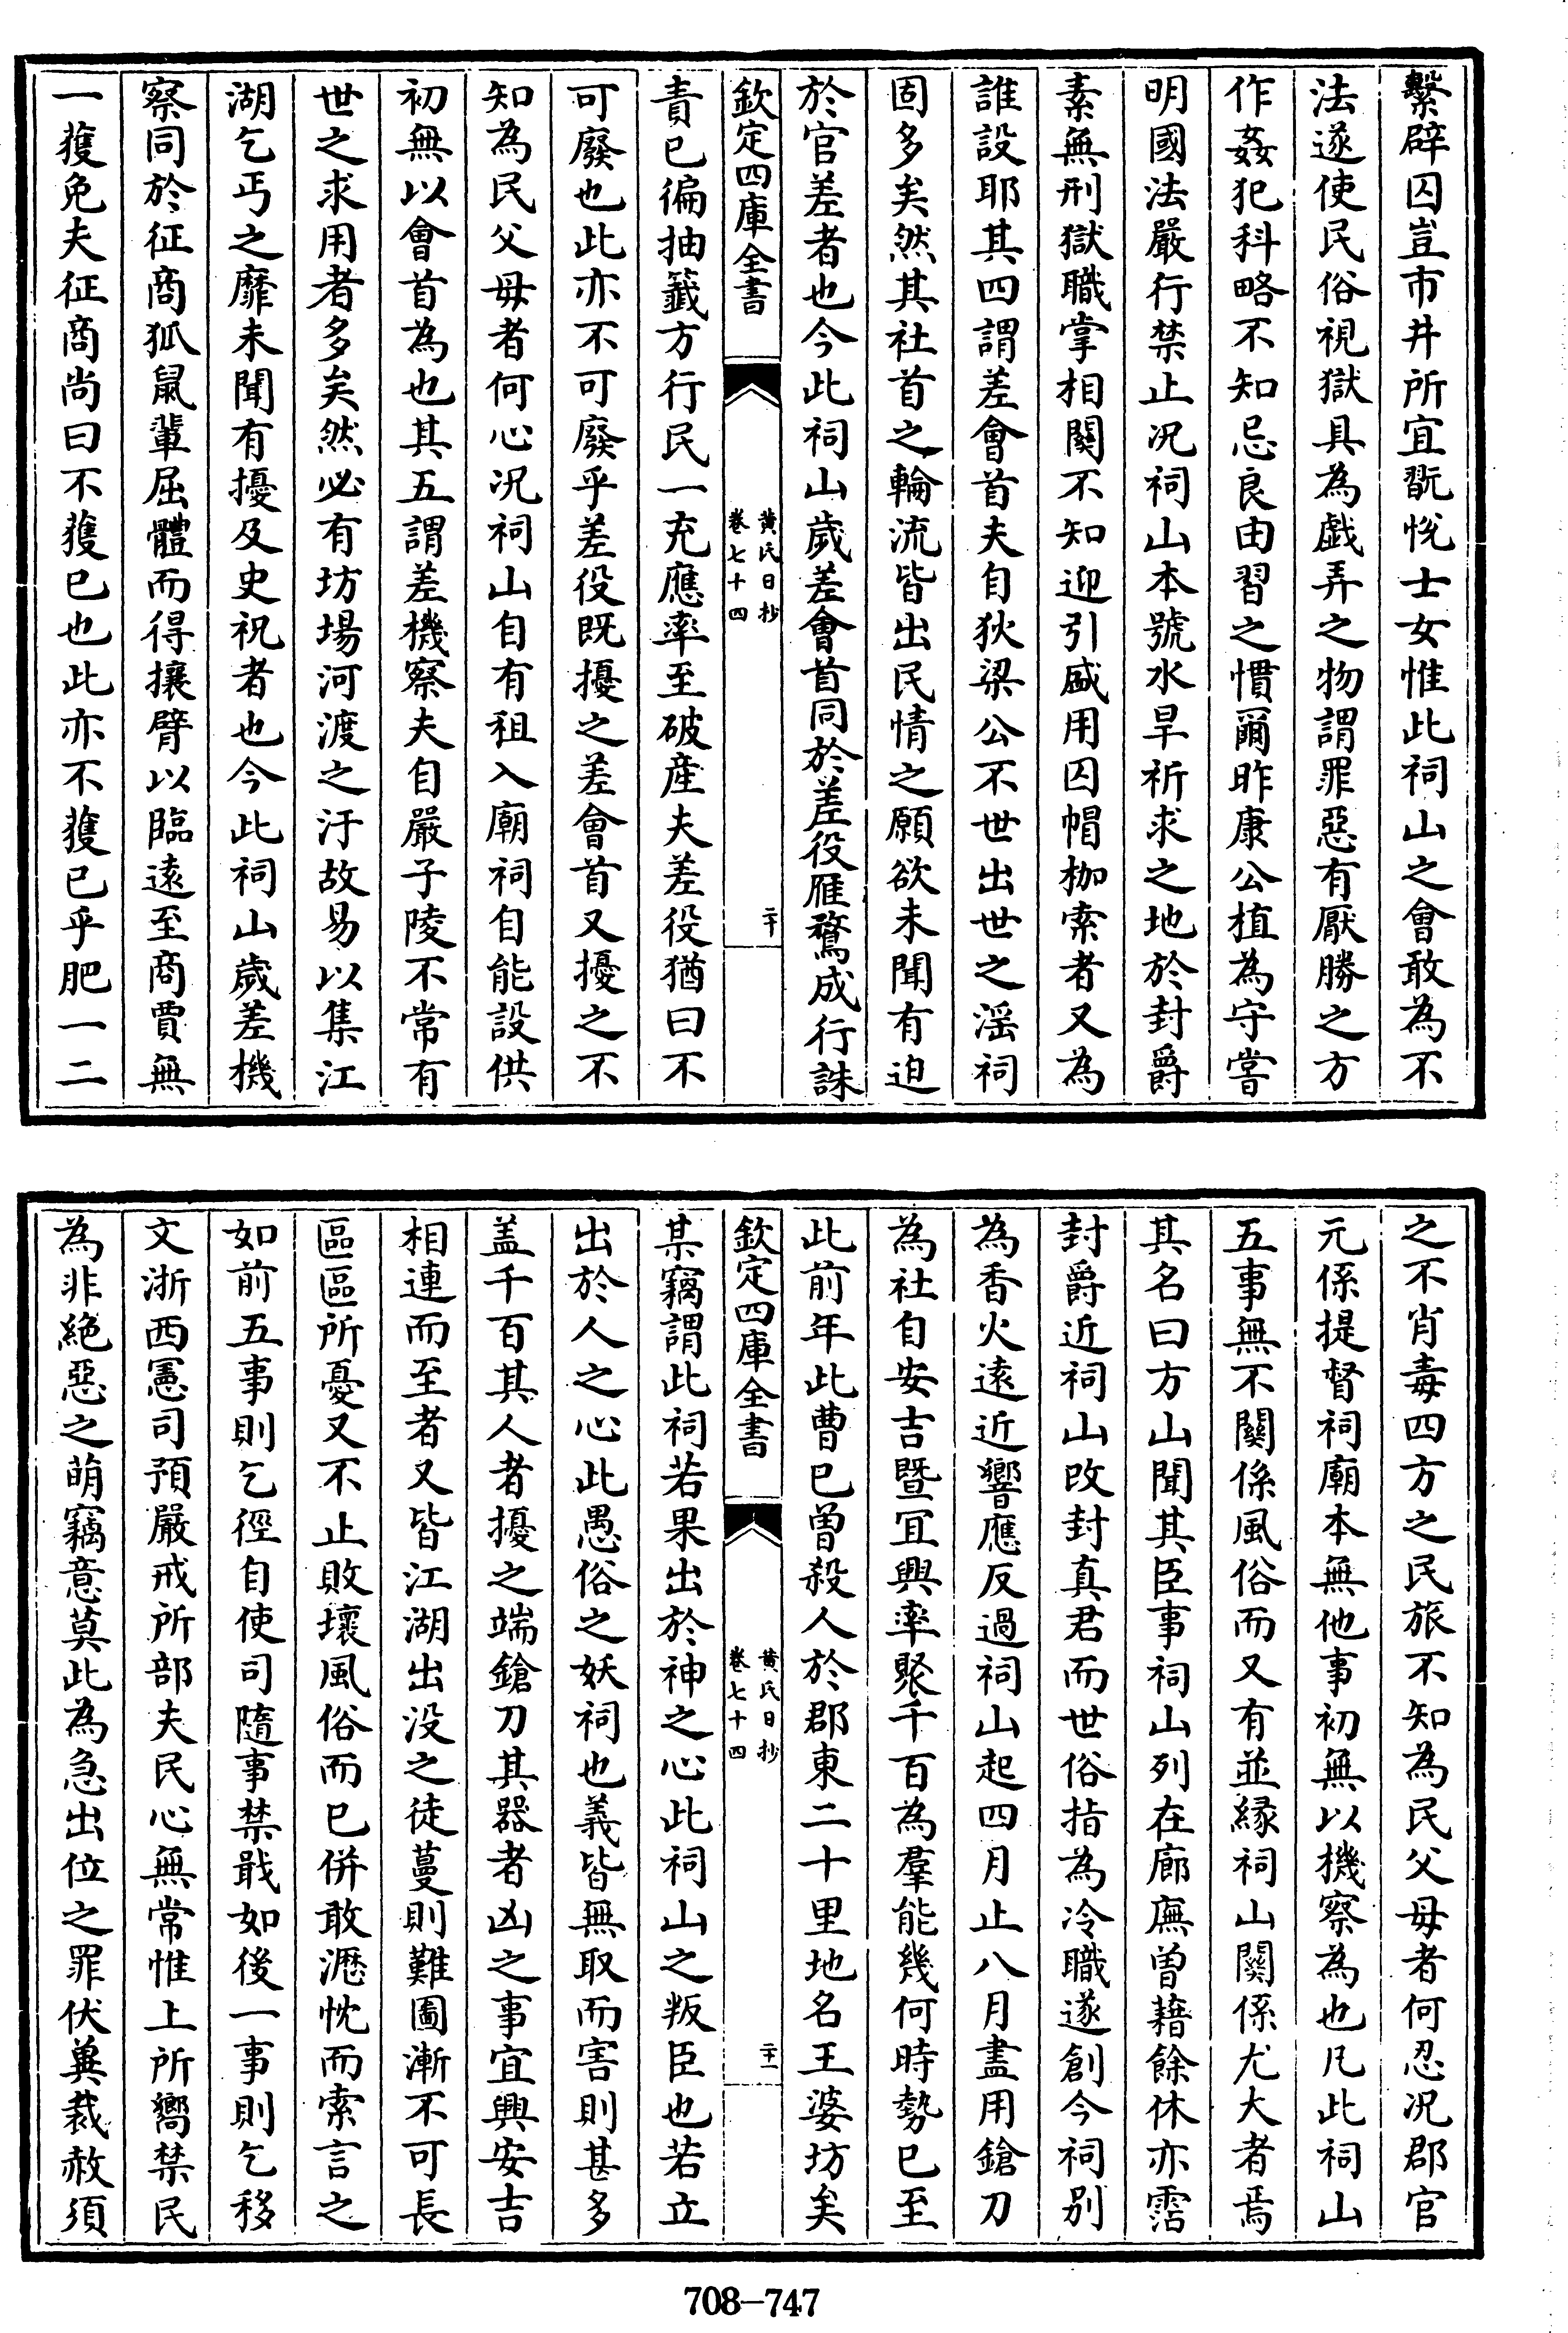 繫辟囚豈市井所宜翫悅士女惟此祠山之會敢為不
法遂使民俗視獄具為戲弄之物謂罪惡有厭勝之方
作姦犯科略不知忌良由習之慣爾昨康公植為守嘗
明國法嚴行禁止况祠山本號水旱祈求之地於封爵
素無刑獄職掌相關不知迎引盛用囚帽枷索者又為
誰設耶其四謂差會首夫自狄梁公不世出世之滛祠
固多矣然其社首之輪流皆出民情之願欲未聞有迫
於官差者也今此祠山歲差會首同於差役雁鶩成行誅
欽定四庫全書
黃氏日抄
卷七十四
二十
責已徧抽籤方行民一充應率至破産夫差役猶曰不
可廢也此亦不可廢乎差役既擾之差會首又擾之不
知為民父母者何心况祠山自有租入廟祠自能設供
初無以會首為也其五謂差機察夫自嚴子陵不常有
世之求用者多矣然必有坊場河渡之汙故易以集江
湖乞丐之靡未聞有擾及史祝者也今此祠山歲差機
察同於征商狐鼠輩屈體而得攘臂以臨遠至商賈無
一獲免夫征商尚曰不獲已也此亦不獲已乎肥一二
之不肖毒四方之民旅不知為民父母者何忍况郡官
元係提督祠廟本無他事初無以機察為也凡此祠山
五事無不關係風俗而又有並緣祠山關係尤大者焉
其名曰方山聞其臣事祠山列在廊廡曽藉餘休亦霑
封爵近祠山改封真君而世俗指為冷職遂創今祠别
為香火遠近響應反過祠山起四月止八月盡用鎗刀
為社自安吉暨宜興率聚千百為羣能幾何時勢已至
此前年此曹已曽殺人於郡東二十里地名王婆坊矣
欽定四庫全書
黃氏日抄
卷七十四
二十一
某竊謂此祠若果出於神之心此祠山之叛臣也若立
出於人之心此愚俗之妖祠也義皆無取而害則甚多
盖千百其人者擾之端鎗刀其器者凶之事宜興安吉
相連而至者又皆江湖出没之徒蔓則難圖漸不可長
區區所憂又不止敗壞風俗而已併敢瀝忱而索言之
如前五事則乞徑自使司隨事禁戢如後一事則乞移
文浙西憲司預嚴戒所部夫民心無常惟上所嚮禁民
為非絶惡之萌竊意莫此為急出位之罪伏兾裁赦須
708-747